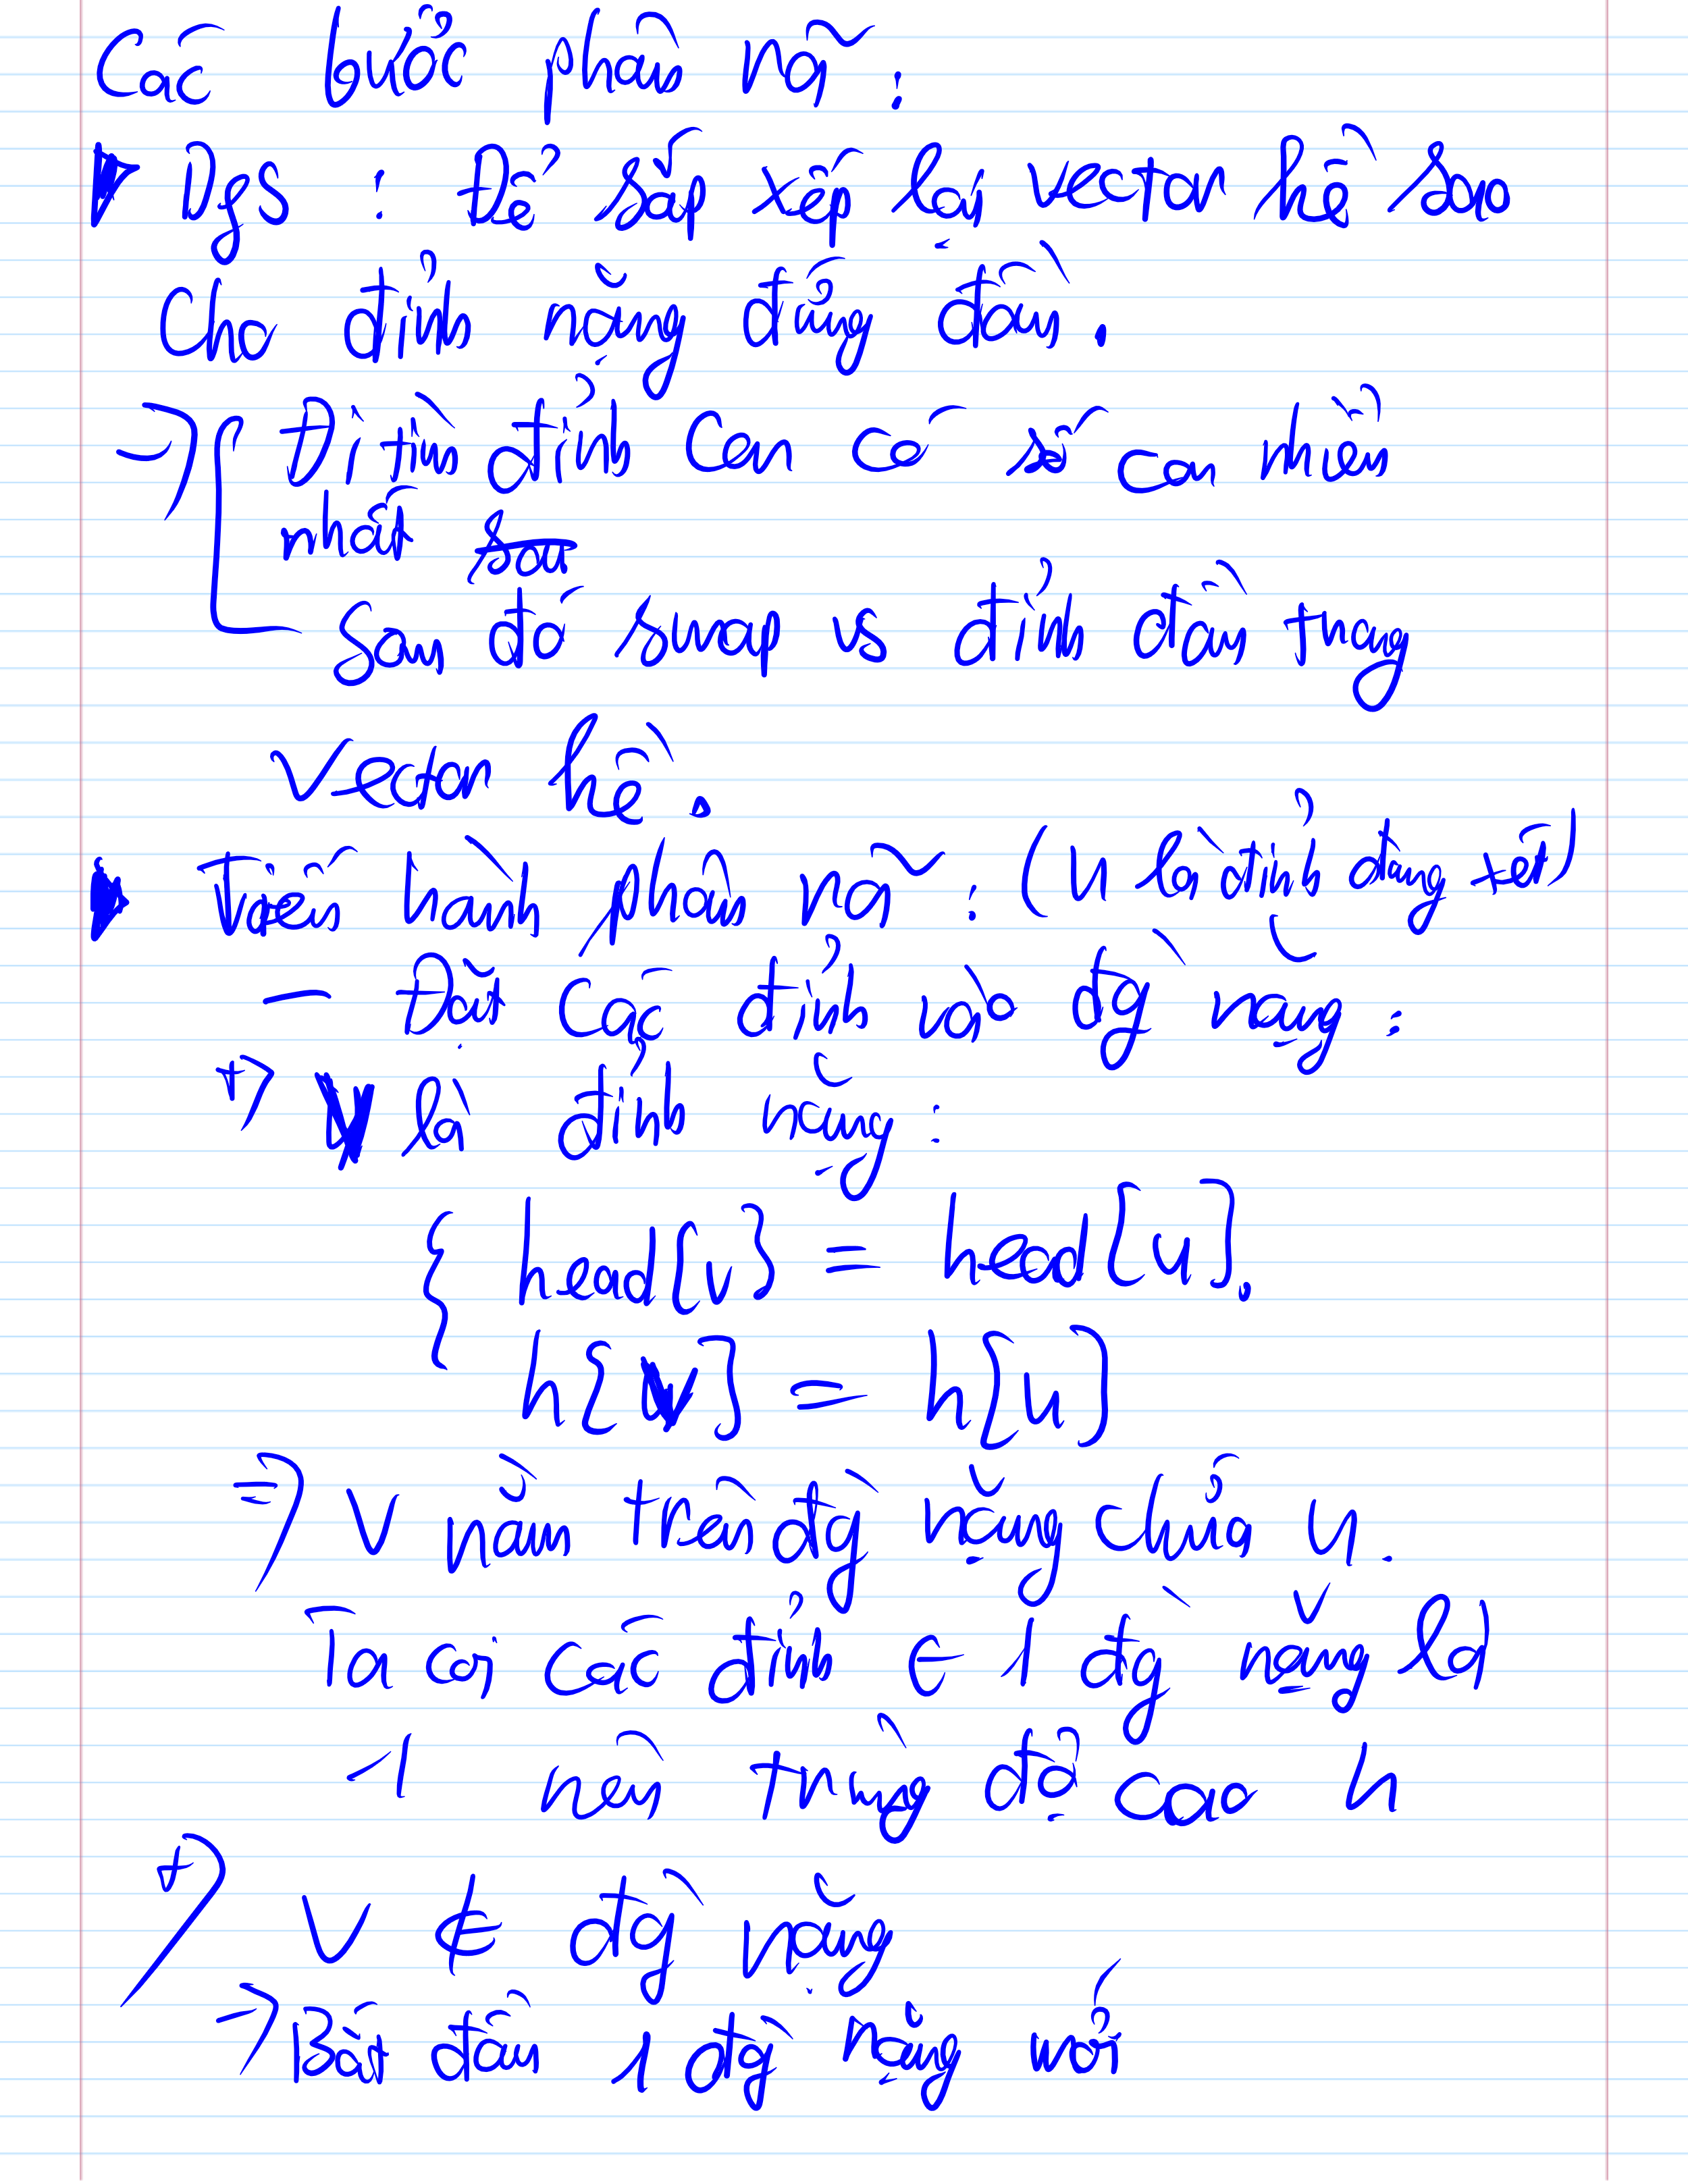 Các bước phân rã:
Dfs : Để sắp xếp lại vector kề sao
cho đỉnh nặng đứng đầu.
→ Đi tìm đỉnh con có số con nhiều
nhất
Sau đó swap vs đỉnh đầu trong
vector kề.
Tiến hành phân rã: (u là đỉnh đang xét)
- Đặt các đỉnh vào đg nặng:
+> v là đỉnh nặng:
{ head[v] = head[u].
h[v] = h[u]
=> v nằm trên đg nặng chứa u.
Ta coi các đỉnh ∈ 1 đg nặng là
1 nên trùng độ cao h
+> v ∉ đg nặng
→ Bắt đầu 1 đg nặng mới